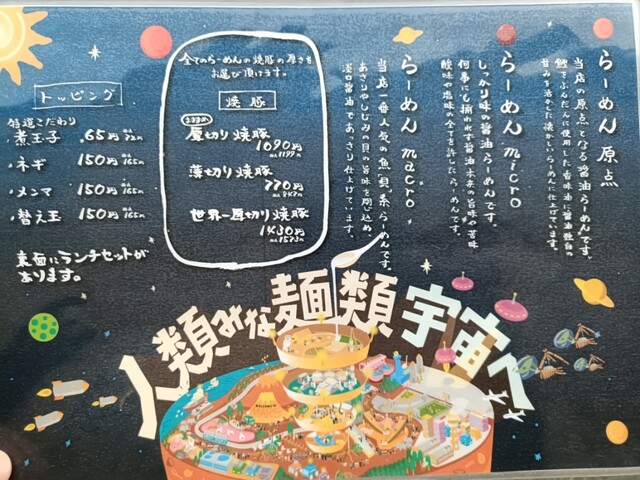 らーめん 原点
当店の原点となる醤油らーめんです。
鰹をふんだんに使用した香味油に醤油独自の
旨みを活かした懐かしいらーめんに仕上げています。
らーめん micro
しっかり味の醤油らーめんです。
何事にも捕われず醤油本来の旨味や苦味
酸味や塩味の全てを許したらーめんです。
らーめん macro
当店一番人気の魚貝系らーめんです。
あさりやしじみの貝の旨味を閉じ込め、
淡口醤油であっさり仕上げています。
全てのらーめんの焼豚の厚さを
お選び頂けます。
焼豚
おすすめ
厚切り焼豚
1090円
税込1199円
薄切り焼豚
770円
税込847円
世界一厚切り焼豚
1430円
税込1573円
トッピング
特選こだわり
煮玉子 65円 税込72円
・ネギ 150円 税込165円
・メンマ 150円 税込165円
・替え玉 150円 税込165円
裏面にランチセットが
あります。
人類みな麺類宇宙へ